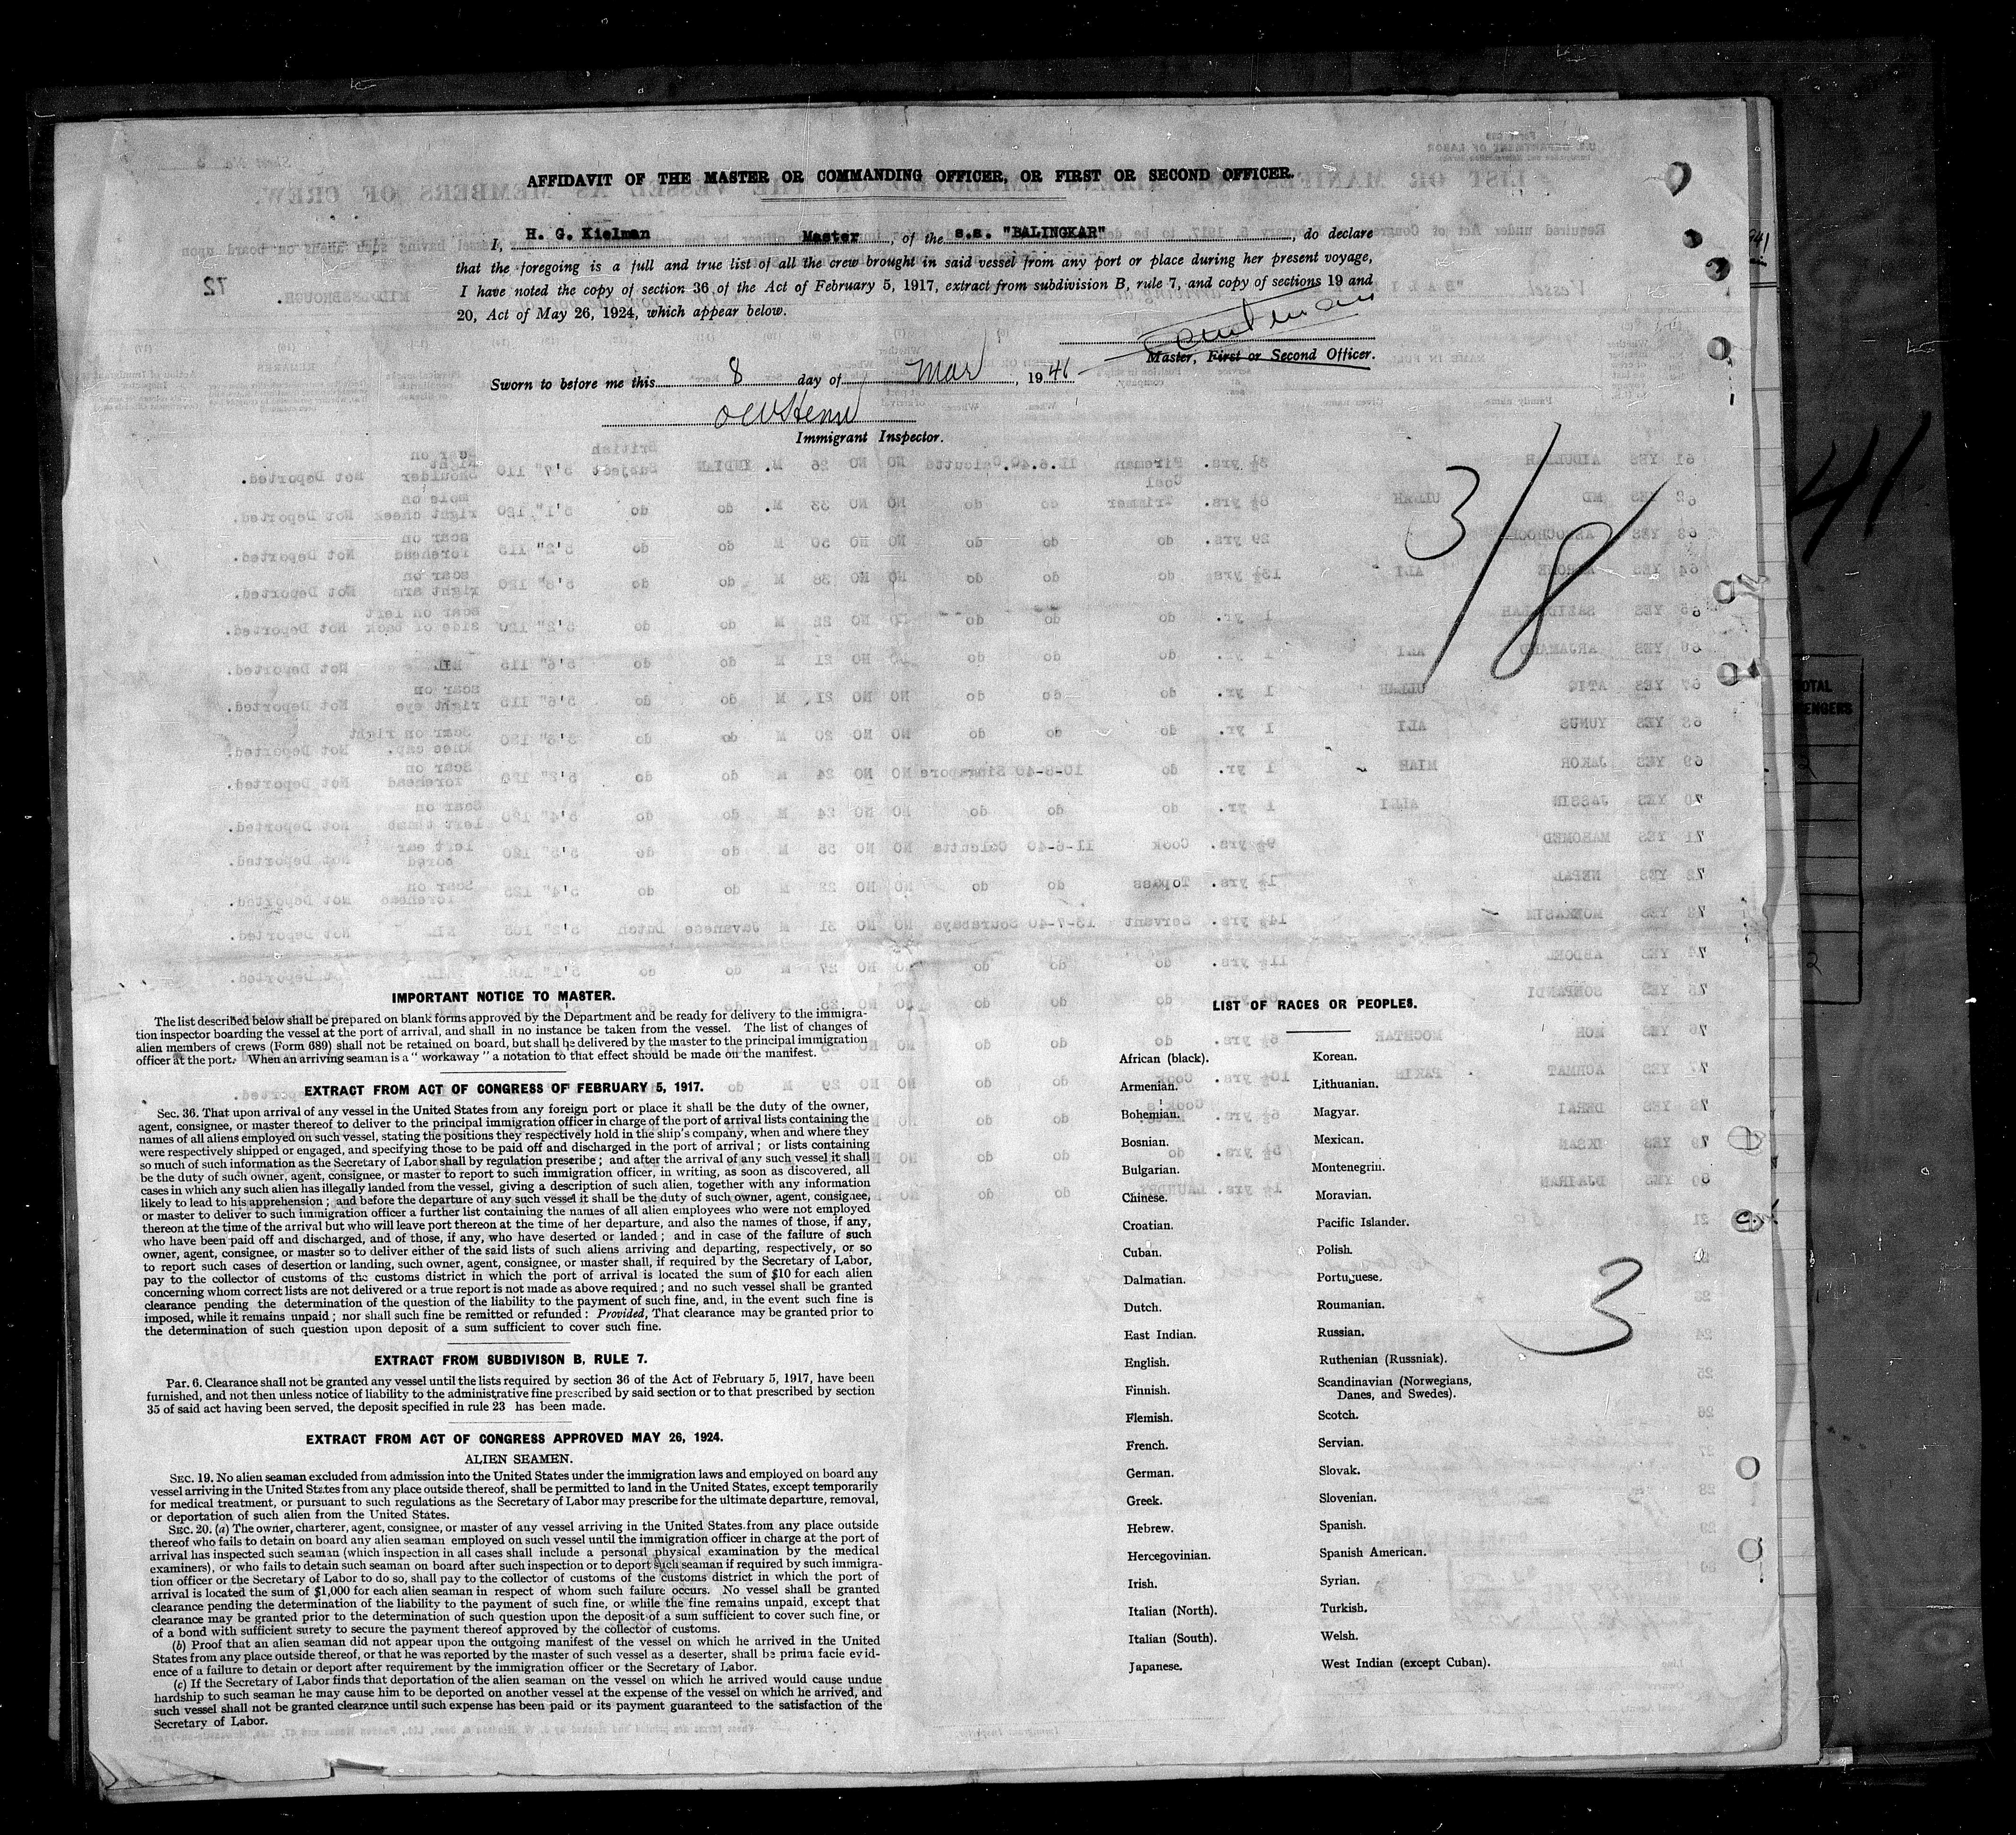 AFFIDAVIT OF THE MASTER OR COMMANDING OFFICER, OR FIRST OR SECOND OFFICER.
I, H. G. Kielman Master, of the s.s. "BALINGKAR", do declare
that the foregoing is a full and true list of all the crew brought in said vessel from any port or place during her present voyage,
I have noted the copy of section 36 of the Act of February 5, 1917, extract from subdivision B, rule 7, and copy of sections 19 and
20, Act of May 26, 1924, which appear below.
Master, First or Second Officer.
Sworn to before me this 8 day of Mar, 1941
Immigrant Inspector.
3/8
IMPORTANT NOTICE TO MASTER.
The list described below shall be prepared on blank forms approved by the Department and be ready for delivery to the immigra-
tion inspector boarding the vessel at the port of arrival, and shall in no instance be taken from the vessel. The list of changes of
alien members of crews (Form 689) shall not be retained on board, but shall be delivered by the master to the principal immigration
officer at the port. When an arriving seaman is a "workaway" a notation to that effect should be made on the manifest.
EXTRACT FROM ACT OF CONGRESS OF FEBRUARY 5, 1917.
Sec. 36. That upon arrival of any vessel in the United States from any foreign port or place it shall be the duty of the owner,
agent, consignee, or master thereof to deliver to the principal immigration officer in charge of the port of arrival lists containing the
names of all aliens employed on such vessel, stating the positions they respectively hold in the ship's company, when and where they
were respectively shipped or engaged, and specifying those to be paid off and discharged in the port of arrival; or lists containing
so much of such information as the Secretary of Labor shall by regulation prescribe; and after the arrival of any such vessel it shall
be the duty of such owner, agent, consignee, or master to report to such immigration officer, in writing, as soon as discovered, all
cases in which any such alien has illegally landed from the vessel, giving a description of such alien, together with any information
likely to lead to his apprehension; and before the departure of any such vessel it shall be the duty of such owner, agent, consignee,
or master to deliver to such immigration officer a further list containing the names of all alien employees who were not employed
thereon at the time of the arrival but who will leave port thereon at the time of her departure, and also the names of those, if any,
who have been paid off and discharged, and of those, if any, who have deserted or landed; and in case of the failure of such
owner, agent, consignee, or master so to deliver either of the said lists of such aliens arriving and departing, respectively, or so
to report such cases of desertion or landing, such owner, agent, consignee, or master shall, if required by the Secretary of Labor,
pay to the collector of customs of the customs district in which the port of arrival is located the sum of $10 for each alien
concerning whom correct lists are not delivered or a true report is not made as above required; and no such vessel shall be granted
clearance pending the determination of the question of the liability to the payment of such fine, and, in the event such fine is
imposed, while it remains unpaid; nor shall such fine be remitted or refunded: Provided, That clearance may be granted prior to
the determination of such question upon deposit of a sum sufficient to cover such fine.
EXTRACT FROM SUBDIVISON B, RULE 7.
Par. 6. Clearance shall not be granted any vessel until the lists required by section 36 of the Act of February 5, 1917, have been
furnished, and not then unless notice of liability to the administrative fine prescribed by said section or to that prescribed by section
35 of said act having been served, the deposit specified in rule 23 has been made.
EXTRACT FROM ACT OF CONGRESS APPROVED MAY 26, 1924.
ALIEN SEAMEN.
Sec. 19. No alien seaman excluded from admission into the United States under the immigration laws and employed on board any
vessel arriving in the United States from any place outside thereof, shall be permitted to land in the United States, except temporarily
for medical treatment, or pursuant to such regulations as the Secretary of Labor may prescribe for the ultimate departure, removal,
or deportation of such alien from the United States.
Sec. 20. (a) The owner, charterer, agent, consignee, or master of any vessel arriving in the United States from any place outside
thereof who fails to detain on board any alien seaman employed on such vessel until the immigration officer in charge at the port of
arrival has inspected such seaman (which inspection in all cases shall include a personal physical examination by the medical
examiners), or who fails to detain such seaman on board after such inspection or to deport such seaman if required by such immigra-
tion officer or the Secretary of Labor to do so, shall pay to the collector of customs of the customs district in which the port of
arrival is located the sum of $1,000 for each alien seaman in respect of whom such failure occurs. No vessel shall be granted
clearance pending the determination of the liability to the payment of such fine, or while the fine remains unpaid, except that
clearance may be granted prior to the determination of such question upon the deposit of a sum sufficient to cover such fine, or
of a bond with sufficient surety to secure the payment thereof approved by the collector of customs.
(b) Proof that an alien seaman did not appear upon the outgoing manifest of the vessel on which he arrived in the United
States from any place outside thereof, or that he was reported by the master of such vessel as a deserter, shall be prima facie evid-
ence of a failure to detain or deport after requirement by the immigration officer or the Secretary of Labor.
(c) If the Secretary of Labor finds that deportation of the alien seaman on the vessel on which he arrived would cause undue
hardship to such seaman he may cause him to be deported on another vessel at the expense of the vessel on which he arrived, and
such vessel shall not be granted clearance until such expense has been paid or its payment guaranteed to the satisfaction of the
Secretary of Labor.
LIST OF RACES OR PEOPLES.
African (black).
Armenian.
Bohemian.
Bosnian.
Bulgarian.
Chinese.
Croatian.
Cuban.
Dalmatian.
Dutch.
East Indian.
English.
Finnish.
Flemish.
French.
German.
Greek.
Hebrew.
Hercegovinian.
Irish.
Italian (North).
Italian (South).
Japanese.
Korean.
Lithuanian.
Magyar.
Mexican.
Montenegrin.
Moravian.
Pacific Islander.
Polish.
Portuguese.
Roumanian.
Russian.
Ruthenian (Russniak).
Scandinavian (Norwegians,
Danes, and Swedes).
Scotch.
Servian.
Slovak.
Slovenian.
Spanish.
Spanish American.
Syrian.
Turkish.
Welsh.
West Indian (except Cuban).
3
41